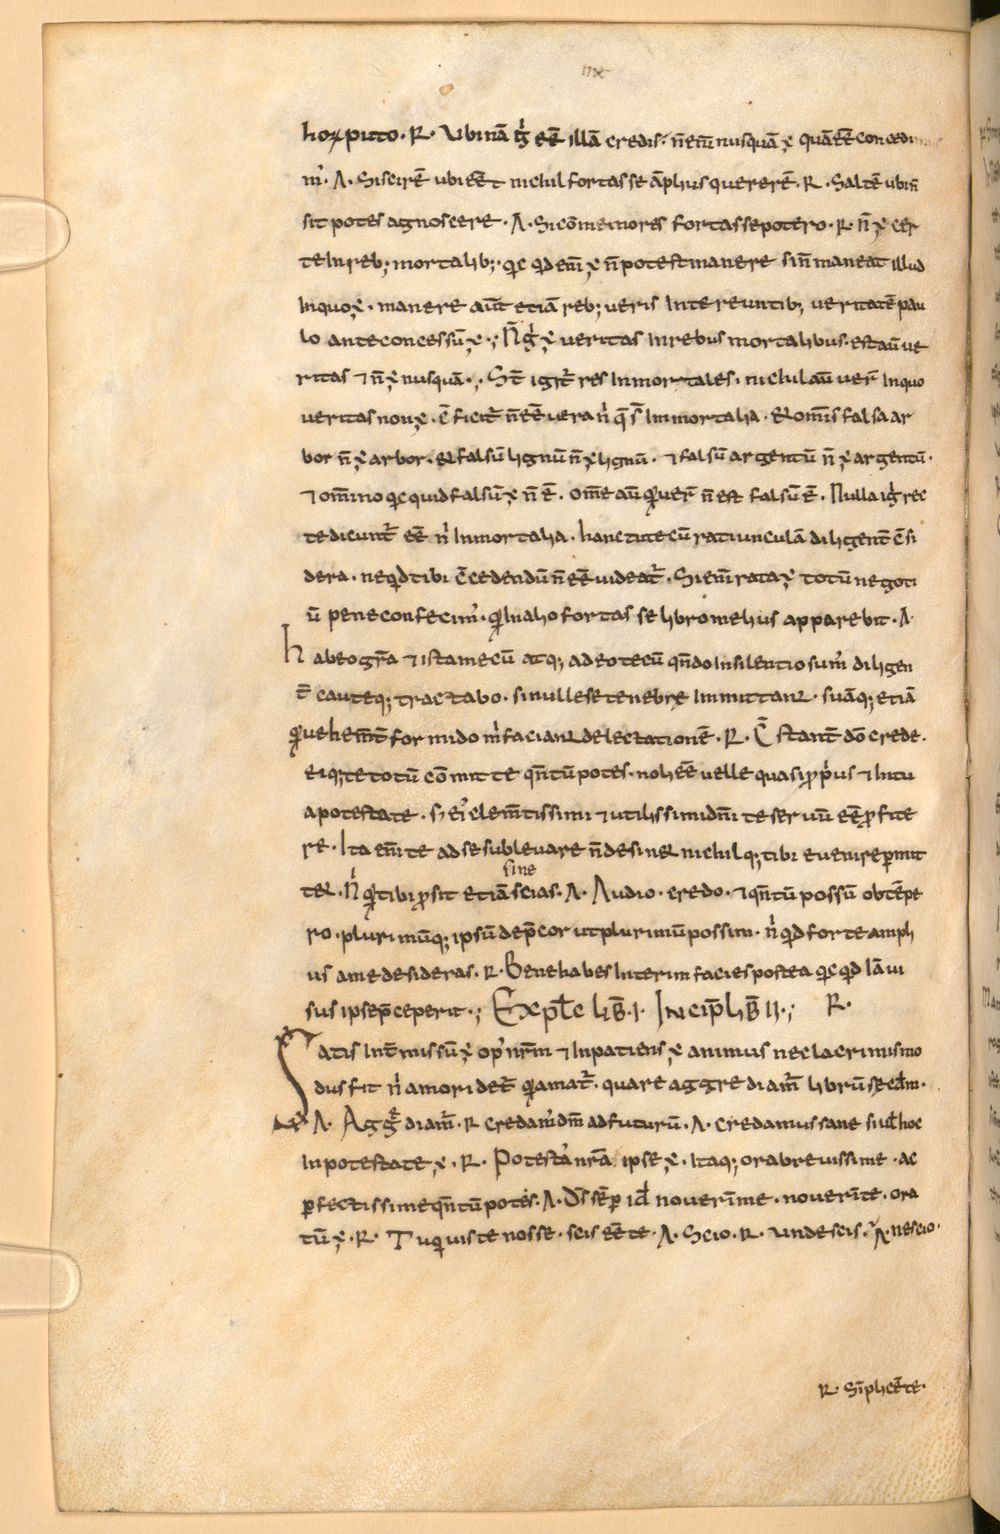 horꝝ puto · R · Ubinā g̊ eē illā credis · n̄ enī nusquā ÷ quā eē concedi
m᷒ · A · Si scirē ubi eēt nichil fortasse āplius quererē · R · Saltē ubi n̄
sit potes agnoscere · A · Si cōmemores fortasse potero · R · n̄ ÷ cer
te in reb; mortalib; · qic qd enī ÷ n̄ potest manere si n̄ maneat illud
in quo ÷ · manere aūt etiā reb; ueris intereuntib; ueritatē pau
lo ante concessū ÷ ·; N̄ g̊ ÷ ueritas in rebus mortalibus · est aū ue
ritas ⁊ n̄ ÷ nusquā · ; St̄ igit̄ res inmortales · nichil aū uer̄ in quo
ueritas non ÷ · c̄ficit̄ n̄ eē uera n̄ q̄ s̄ inmortalia · & om̄is falsa ar
bor n̄ ÷ arbor · & falsū lignū n̄ ÷ lignū · ⁊ falsū argentū n̄ ÷ argentū ·
⁊ om̄ino qic quid falsū ÷ n̄ ē · om̄e aū qd uer̄ n̄ est falsū ē · Nulla ig̊ rec
te dicunt̄ eē n̄ inmortalia · hanc tu tecū ratiunculā diligent̄ c̄si
dera · ne qd tibi c̄cedendū n̄ eē uideat̄ · Si enī rata ÷ totū negoti
ū pene confecim᷒ · qd in alio fortasse libro melius apparebit · A ·
habeo gr̄a ⁊ ista mecū atq; adeo tecū qn̄do in silentio sum᷒ diligen
t̄ cauteq; tractabo · si nulle se tenebrę inmittant · suāq; etiā
qd uehem̄t̄ formido m̊ faciant delectationē · R · C̄stant̄ dō crede ·
eiq; te totū cōmitte qn̄tū potes · noli eē uelle quasi p̄pus ⁊ in tu
a potestate · s; ei᷒ clem̄tissimi ⁊ utilissimi dn̄i te seruū eē p̄fite
re · Ita enī te ad se subleuare n̄ desinet nichilq; tibi euenire p̄mit
tet · n̊ qd tibi p̄sit etiā si nescias · A · Audio · credo · ⁊ qn̄tū possū obtēpe
ro · plurimūq; ipsū dep̄cor ut plurimū possim · n̊ qd forte ampli
us a me desideras · R · Bene habes interim facies postea qic qd iā ui
sus ipse p̄ceperit ·; Explic̄ lib̄ · I · Incip̄ lib̄ II ·; R ·
Satis int̄missū ÷ op᷒ nr̄m ⁊ inpatiens ÷ animus nec lacrimis mo
dus fit n̊ amori det̄ qd amat̄ · quare aggrediam᷒ librū sęcd̄m ·
A · Aggrediam᷒ · R credam᷒ dm̄ adfuturū · A · credamus sane si uł hoc
in potestate ÷ · R · Potestas nr̄a ipse ÷ · Itaq; ora breuissime · ac
p̄fectissime qn̄tū potes · A · Ds̄ sēp idē nouerim me · nouerim te · ora
tū ÷ · R · Tu qui uis te nosse · scis eē te · A · Scio · R · unde scis · A · nescio ·
R · Sīplicēte ·